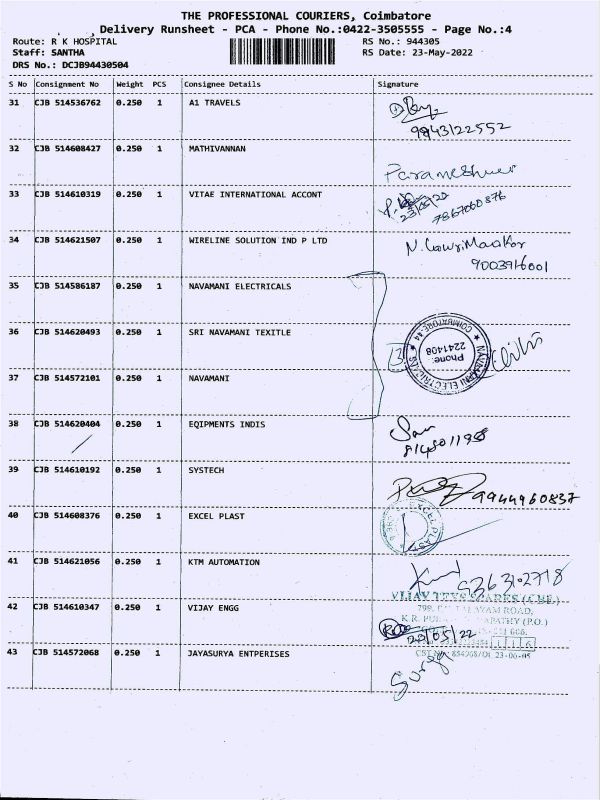 THE PROFESSIONAL COURIERS, Coimbatore
Delivery Runsheet - PCA - Phone No.:0422-3505555 - Page No.:4
Route: R K HOSPITAL RS No.: 944305
Staff: SANTHA RS Date: 23-May-2022
DRS No.: DCJB94430504
S No Consignment No Weight PCS Consignee Details Signature
31 CJB 514536762 0.250 1 A1 TRAVELS
9843122552
32 CJB 514608427 0.250 1 MATHIVANNAN
Parameshwer
33 CJB 514610319 0.250 1 VITAE INTERNATIONAL ACCONT
7867060876
34 CJB 514621507 0.250 1 WIRELINE SOLUTION IND P LTD
N. GowriManikar
9003916001
35 CJB 514586187 0.250 1 NAVAMANI ELECTRICALS
36 CJB 514620493 0.250 1 SRI NAVAMANI TEXITLE
NAVAMANI ELECTRICALS
COIMBATORE-44
Phone:
2241408
3
37 CJB 514572101 0.250 1 NAVAMANI
38 CJB 514620404 0.250 1 EQIPMENTS INDIS
39 CJB 514610192 0.250 1 SYSTECH
9944960837
40 CJB 514608376 0.250 1 EXCEL PLAST
EXCEL PLAST
41 CJB 514621056 0.250 1 KTM AUTOMATION
VIJAY TEVS SPARES (CBE.)
ROAD,
K.R. (P.O.)
42 CJB 514610347 0.250 1 VIJAY ENGG
/05/22
23-06-05
43 CJB 514572068 0.250 1 JAYASURYA ENTPERISES
Surya